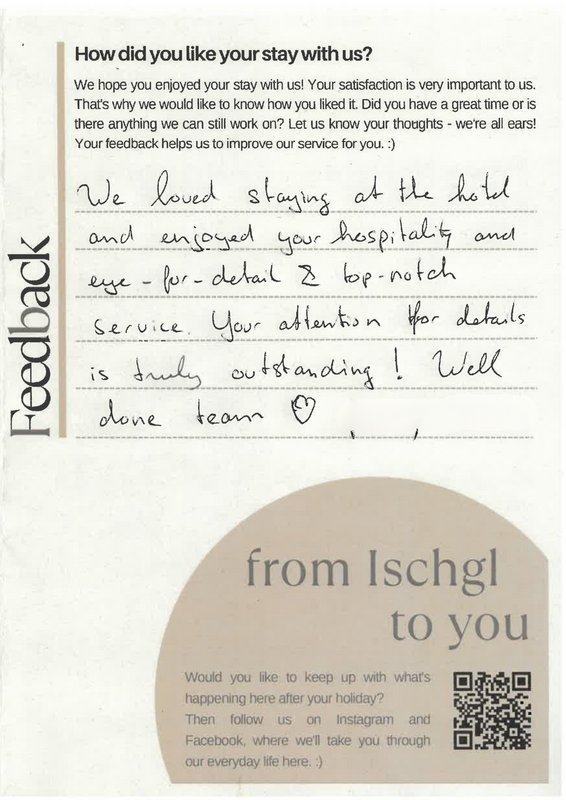 How did you like your stay with us?
We hope you enjoyed your stay with us! Your satisfaction is very important to us.
That's why we would like to know how you liked it. Did you have a great time or is
there anything we can still work on? Let us know your thoughts - we're all ears!
Your feedback helps us to improve our service for you. :)
Feedback
We loved staying at the hotel
and enjoyed your hospitality and
eye-for-detail & top-notch
service. Your attention for details
is truly outstanding! Well
done team ♡
from Ischgl
to you
Would you like to keep up with what's
happening here after your holiday?
Then follow us on Instagram and
Facebook, where we'll take you through
our everyday life here. :)